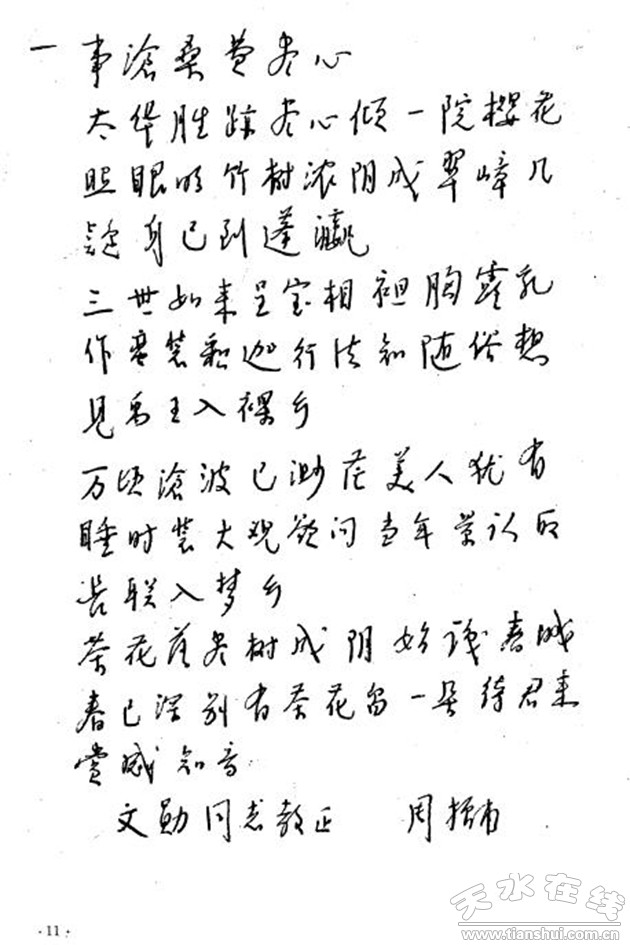 一事沧桑费尽心
太华胜迹尽心倾一院樱花
照眼明竹树浓阴成翠嶂几
疑身已到蓬瀛
三世如来呈宝相袒胸露乳
作蛮装释迦行法知随俗想
见禹王入裸乡
万顷沧波已渺茫美人犹有
睡时装大观欲问当年景认取
长联入梦乡
茶花落尽树成阴始识春城
春已深别有茶花留一朵待君来
赏感知音
文勋同志教正 周振甫
·11·
天水在线
www.tianshui.com.cn